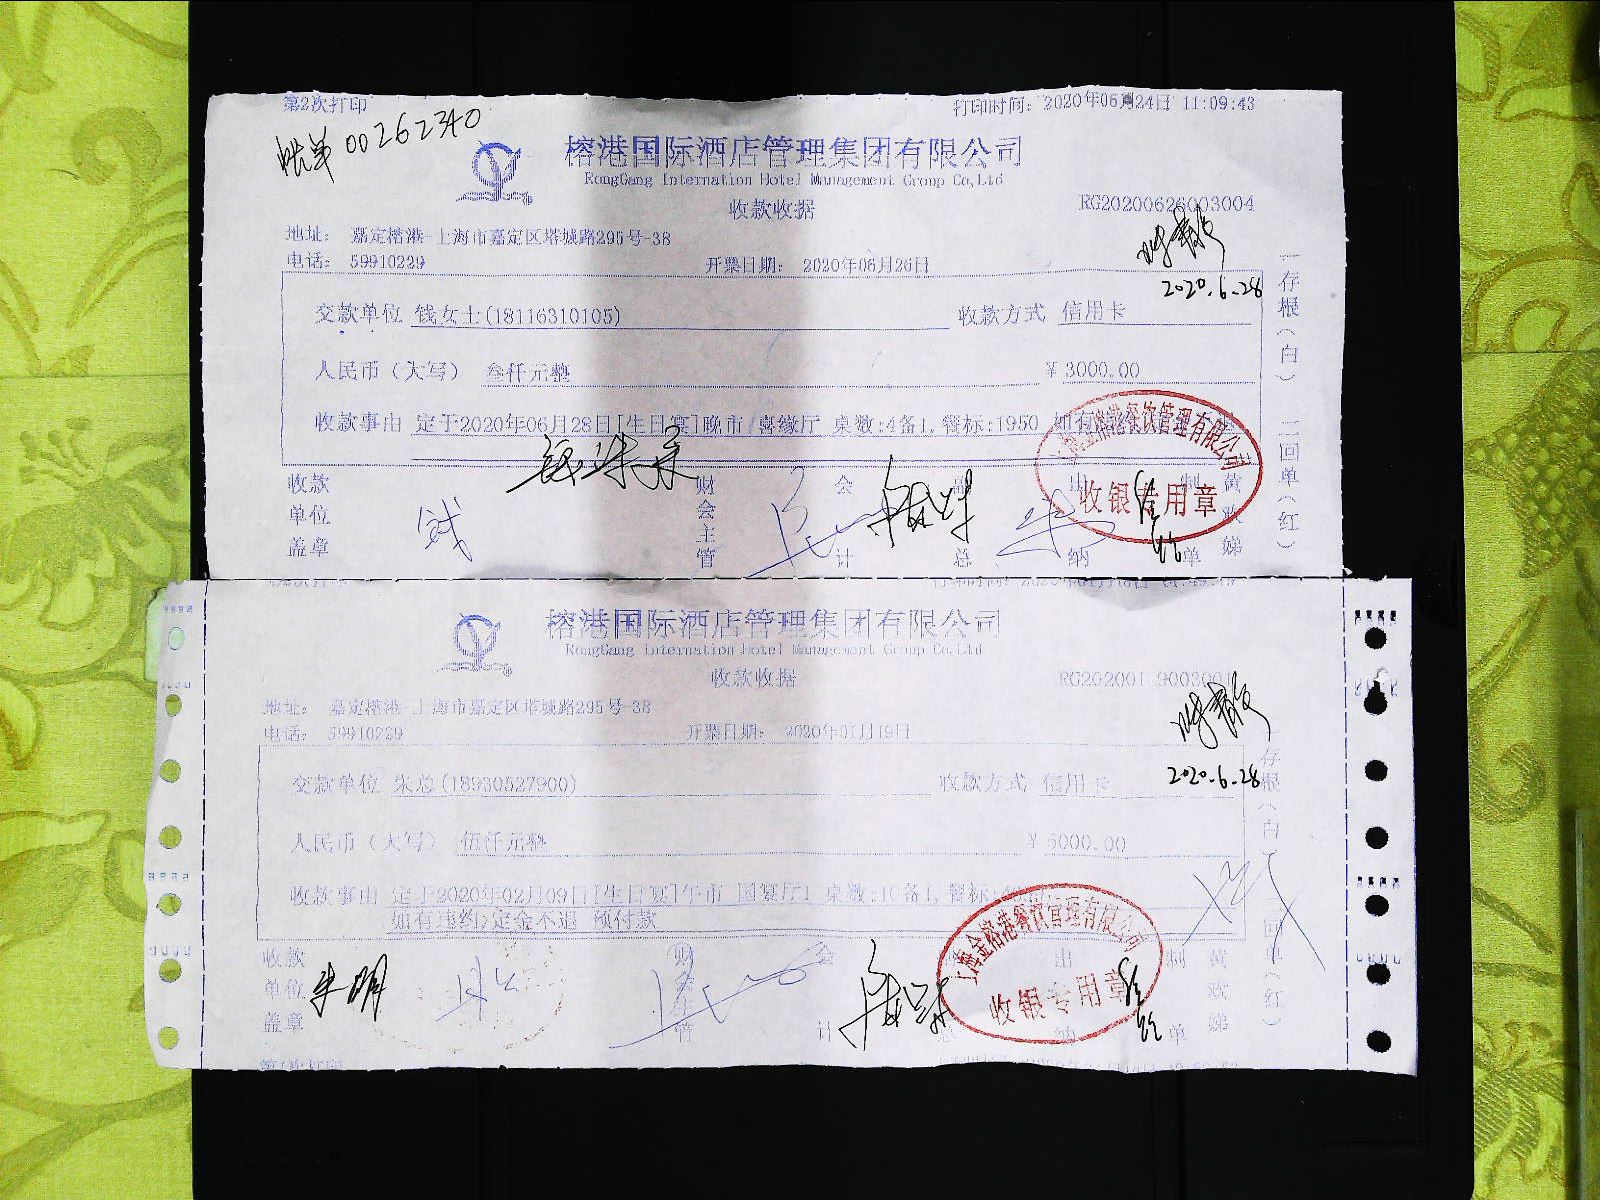 第2次打印
打印时间：2020年06月24日 11:09:43
帐单 00262340
榕港国际酒店管理集团有限公司
RongGang Internation Hotel Management Group Co,Ltd
收款收据
RG20200626003004
地址： 嘉定榕港-上海市嘉定区塔城路295号-38
电话： 59910229
开票日期： 2020年06月26日
2020.6.28
交款单位 钱女士(18116310105)
收款方式 信用卡
人民币（大写） 叁仟元整
¥ 3000.00
收款事由 定于2020年06月28日[生日宴]晚市 喜缘厅 桌数:4备1, 餐标:1950 如有
收款单位盖章
财会主管
会计
副总
出纳
制单
黄欢娣
收银专用章
一存根（白） 二回单（红）
榕港国际酒店管理集团有限公司
RongGang Internation Hotel Management Group Co,Ltd
收款收据
地址： 嘉定榕港-上海市嘉定区塔城路295号-38
电话： 59910229
开票日期： 2020年01月19日
2020.6.28
交款单位 朱总(18930527900)
收款方式 信用卡
人民币（大写） 伍仟元整
¥ 5000.00
收款事由 定于2020年02月09日[生日宴]午市 国宴厅1 桌数:10备1, 餐标:
如有违约,定金不退 预付款
收款单位盖章
朱明
财会主管
会计
总
出纳
制单
黄欢娣
上海金榕港餐饮管理有限公司
收银专用章
存根（白） 二回单（红）
第1次打印